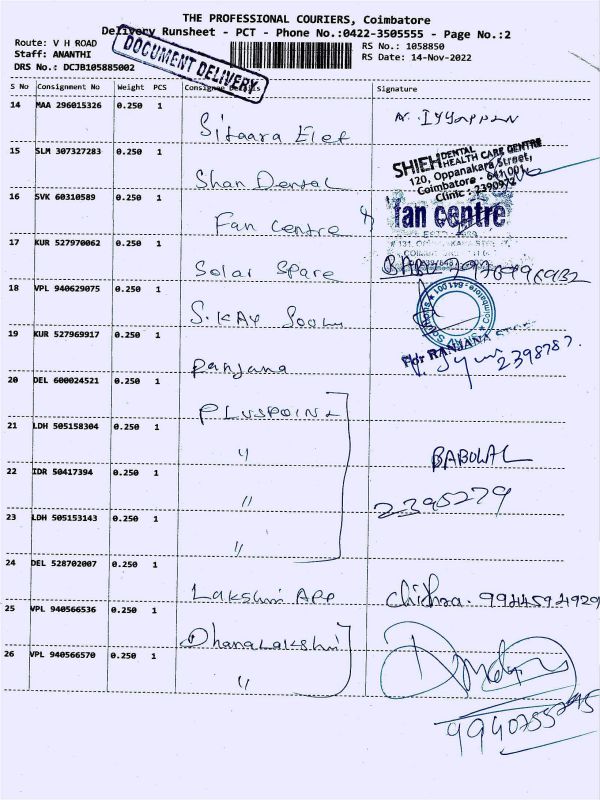 THE PROFESSIONAL COURIERS, Coimbatore
Delivery Runsheet - PCT - Phone No.:0422-3505555 - Page No.:2
Route: V H ROAD
Staff: ANANTHI
DRS No.: DCJB105885002
DOCUMENT DELIVERY
RS No.: 1058850
RS Date: 14-Nov-2022
S No Consignment No Weight PCS Consignee Details Signature
14 MAA 296015326 0.250 1 Sitaara Elet N. IYYAPPAN
15 SLM 307327283 0.250 1 Shan Dental
SHIEH DENTAL HEALTH CARE CENTRE
120, Oppanakara Street,
Coimbatore - 641 001.
Clinic : 2390972
16 SVK 60310589 0.250 1 Fan Centre
fan centre
17 KUR 527970062 0.250 1 Solar Spare BABU
18 VPL 940629075 0.250 1 S.KAY
Coimbatore - 641 001
19 KUR 527969917 0.250 1 Ranjana
For RANJANA
2398787.
20 DEL 600024521 0.250 1 PLUSPOINT
21 LDH 505158304 0.250 1 "
BABULAL
22 IDR 50417394 0.250 1 "
2395279
23 LDH 505153143 0.250 1 "
24 DEL 528702007 0.250 1 Lakshmi APP Chithra. 9944594929
25 VPL 940566536 0.250 1 Dhanalakshmi
26 VPL 940566570 0.250 1 "